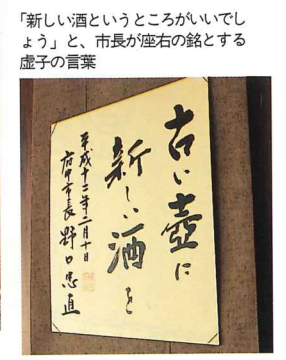 「新しい酒というところがいいでし
ょう」と、市長が座右の銘とする
虚子の言葉
古い壺に
新しい酒を
平成十二年二月十日
府中市長 野口忠直